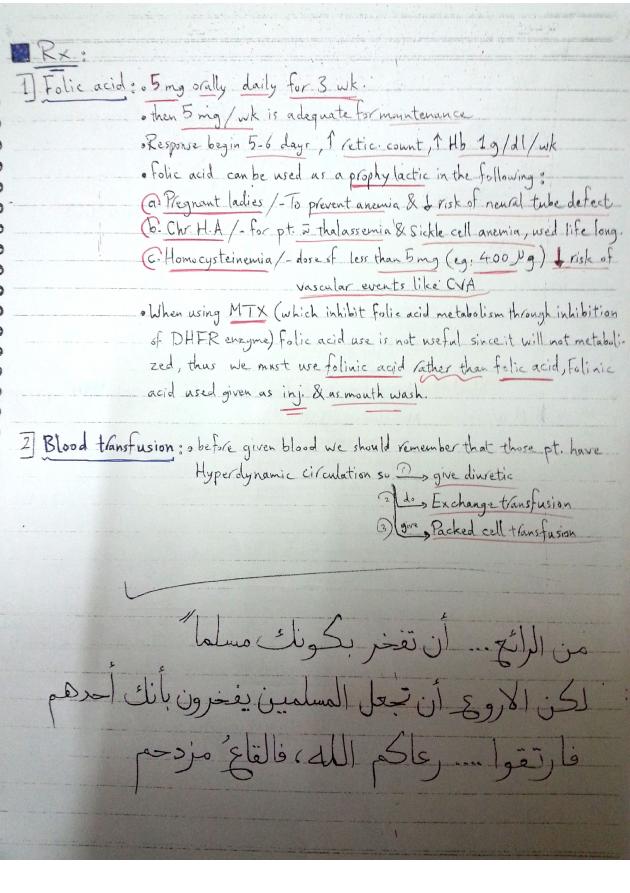 Rx:
1] Folic acid: • 5 mg orally daily for 3 wk.
• then 5 mg/wk is adequate for maintenance
• Response begin 5-6 days, ↑ retic. count, ↑ Hb 1g/dl/wk
• folic acid can be used as a prophylactic in the following:
a. Pregnant ladies /- To prevent anemia & ↓ risk of neural tube defect
b. Chr. H.A /- for pt. c̄ thalassemia & Sickle cell anemia, used life long.
c. Homocysteinemia /- dose of less than 5mg (eg: 400 μg) ↓ risk of
vascular events like CVA
• When using MTX (which inhibit folic acid metabolism through inhibition
of DHFR enzyme) folic acid use is not useful since it will not metaboli-
zed, thus we must use folinic acid rather than folic acid, Folinic
acid used given as inj. & as mouth wash.
2] Blood transfusion: • before given blood we should remember that those pt. have
Hyperdynamic circulation so ① → give diuretic
② do → Exchange transfusion
③ give → Packed cell transfusion
من الرائع... أن تفخر بكونك مسلماً
لكن الاروع أن تجعل المسلمين يفخرون بأنك أحدهم
فارتقوا .... رعاكم الله، فالقاعُ مزدحم